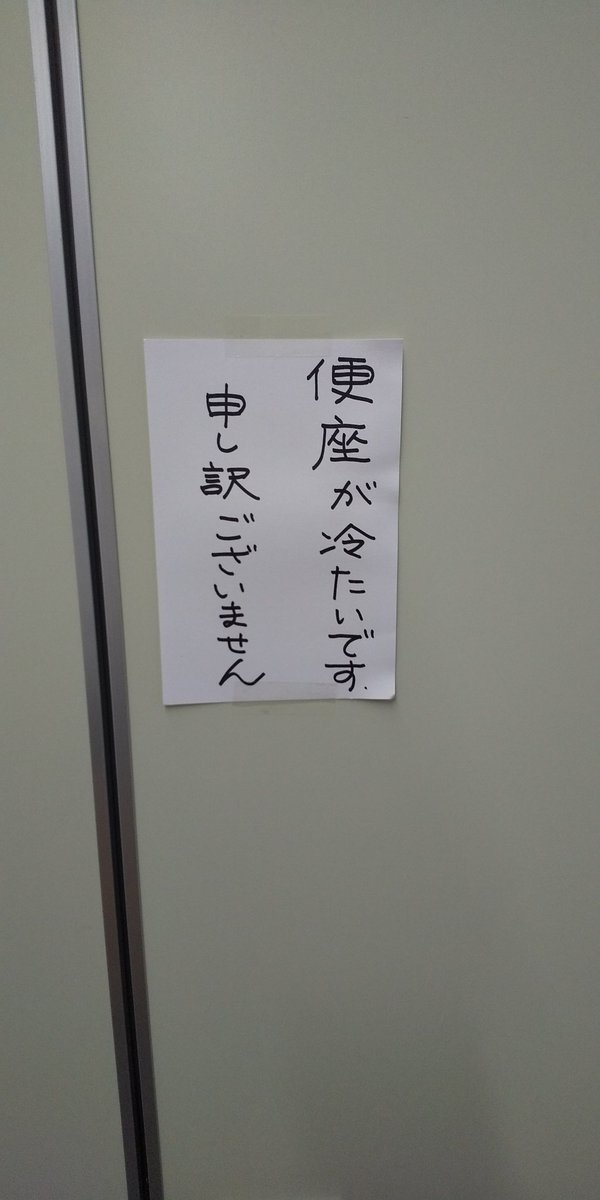 便座が冷たいです.
申し訳ございません